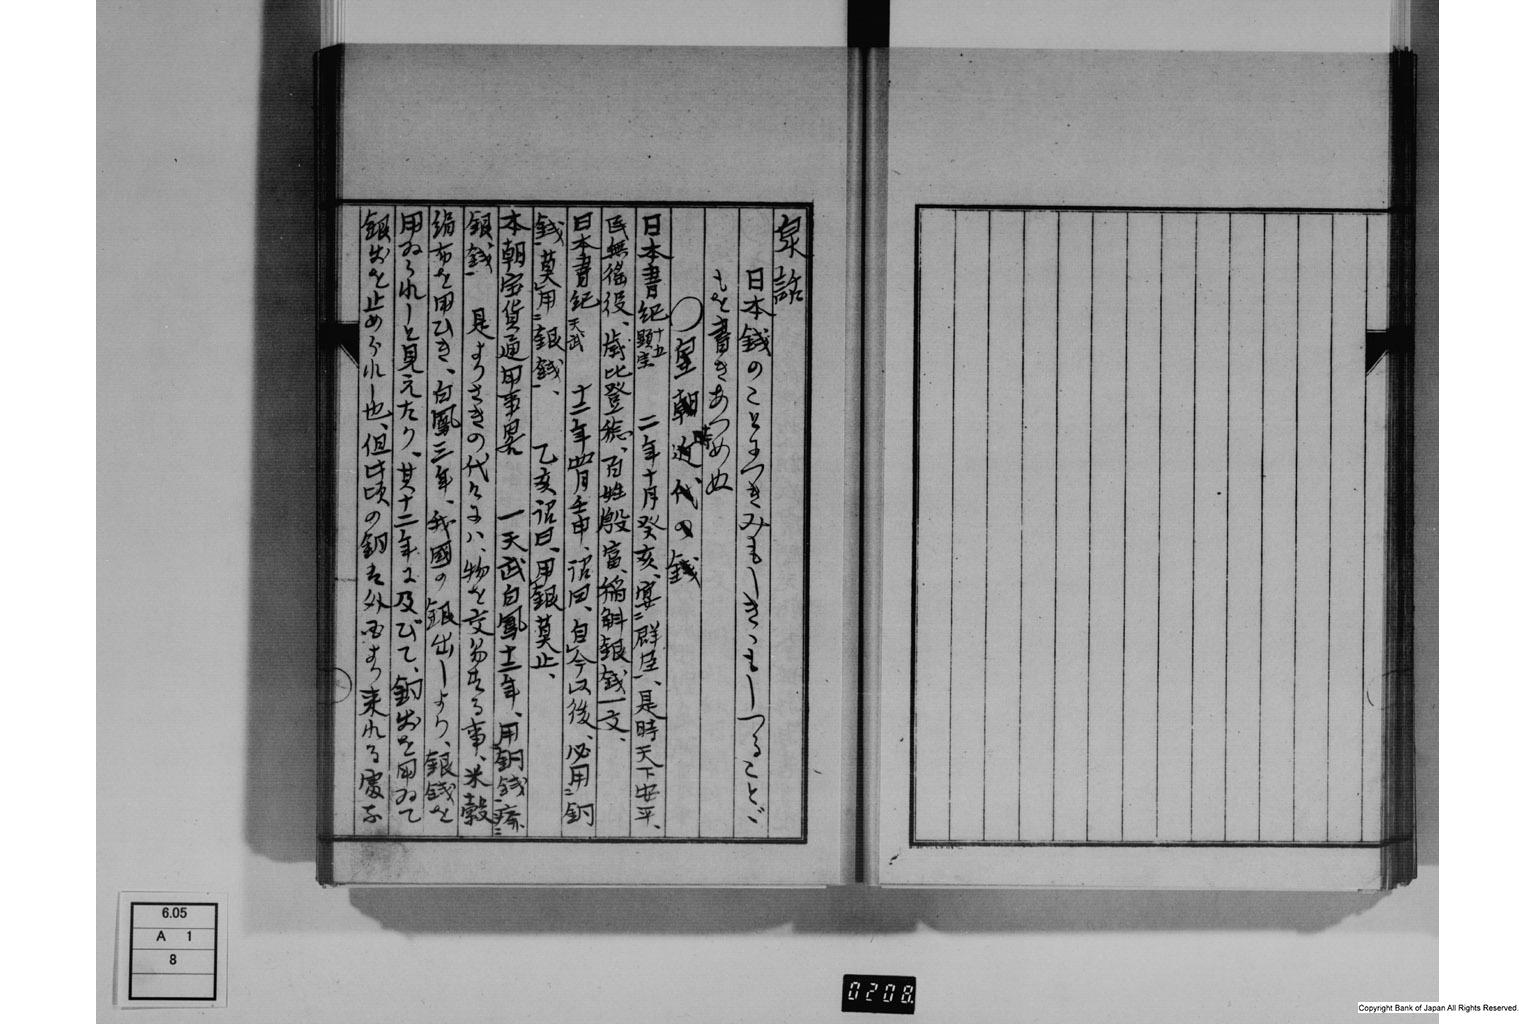 泉話
日本銭のことにつきみもしきゝもしつることゞ
もを書きあつめぬ
〇皇朝近代の銭
時
日本書紀十五顕宗　二年十月癸亥、宴二群臣一、是時天下安平、
民無徭役、歳比登稔、百姓殷富、稲斛銀銭一文、
日本書紀天武　十二年四月壬申、詔曰、自今以後、必用二銅
銭一莫用二銀銭一、　乙亥詔曰、用銀莫止、
本朝宝貨通用事畧　一天武白鳳十二年、用銅銭癈二
銀銭一　是よりさきの代々にハ、物を交易する事、米穀
絹布を用ひき、白鳳三年、我國の銀出しより、銀銭を
用ゐられしと見えたり、其十二年に及びて、銅銭を用ゐて
銀銭を止められし也、但此頃の銅は外国より来れる處な
6.05
A 1
8
0208
Copyright Bank of Japan All Rights Reserved.